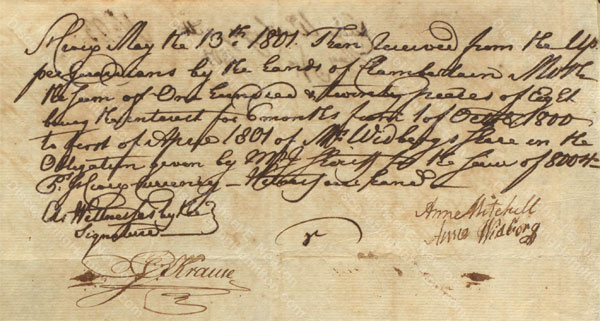 St Croix May the 13th 1801. Then received from the Up
per guardians by the hands of Chamberlain Moth
the Sum of One hundred & twenty peeces of Eight
being the interest for 6 months from 1 of Octr 1800
to first of Aprie 1801 of Mrs Widbergs Share in the
Obligation given by Mrs to the Sum of 8004
Ps St Croix Currency - Witness our hands
As Witnesses by the
Signature
Krause
Anne Mitchell
Anne Widberg